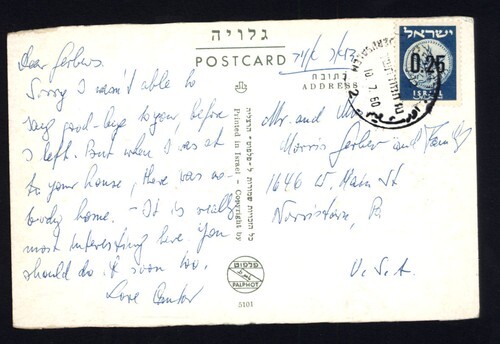 גלויה
POSTCARD
Dear Gerbers.
Sorry I wasn't able to
say good-bye to you, before
I left. But when I was at
to your house, there was no-
body home. - It is really
most interesting here, you
should do it soon too.
Love Cantor
כל הזכויות שמורות
Printed in Israel - Copyright by
פלפוט
PALPHOT
5101
דואר אויר
כתובת
ADDRESS
ישראל
0.25
ISRAEL
JERUSALEM
18.7.60
Mr. and Mrs
Morris Gerber and Family
1646 W. Main St
Norristown, Pa
U.S.A.